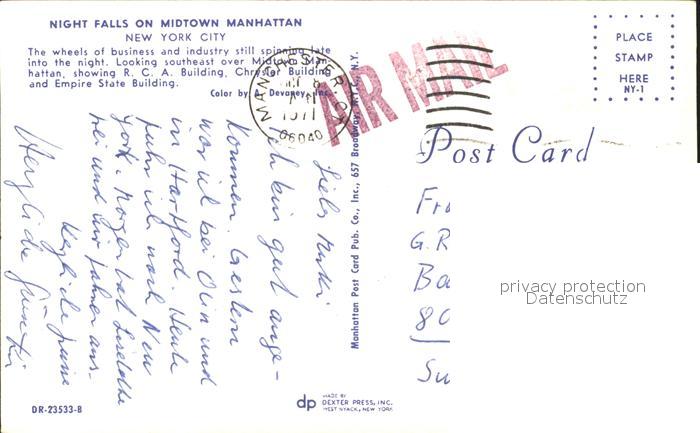 NIGHT FALLS ON MIDTOWN MANHATTAN
NEW YORK CITY
The wheels of business and industry still spinning late
into the night. Looking southeast over Midtown Man-
hattan, showing R. C. A. Building, Chrysler Building
and Empire State Building.
Color by F. Devaney, Inc.
MANCHESTER, CT
AM
1971
06040
AIR MAIL
PLACE
STAMP
HERE
NY-1
Post Card
Manhattan Post Card Pub. Co., Inc., 657 Broadway, N.Y.C., N.Y.
Liebs Mutti
Ich bin gut ange-
kommen. Gestern
war ich bei Olin und
in Hartford. Heute
fuhr ich nach New
York. Morgen hat Liselotte
frei und wir fahren aus.
Herzliche Grüsse
Herzliche Grüsse
Fr
G. R
Ba
80
Su
privacy protection
Datenschutz
DR-23533-B
dp
MADE BY
DEXTER PRESS, INC.
WEST NYACK, NEW YORK